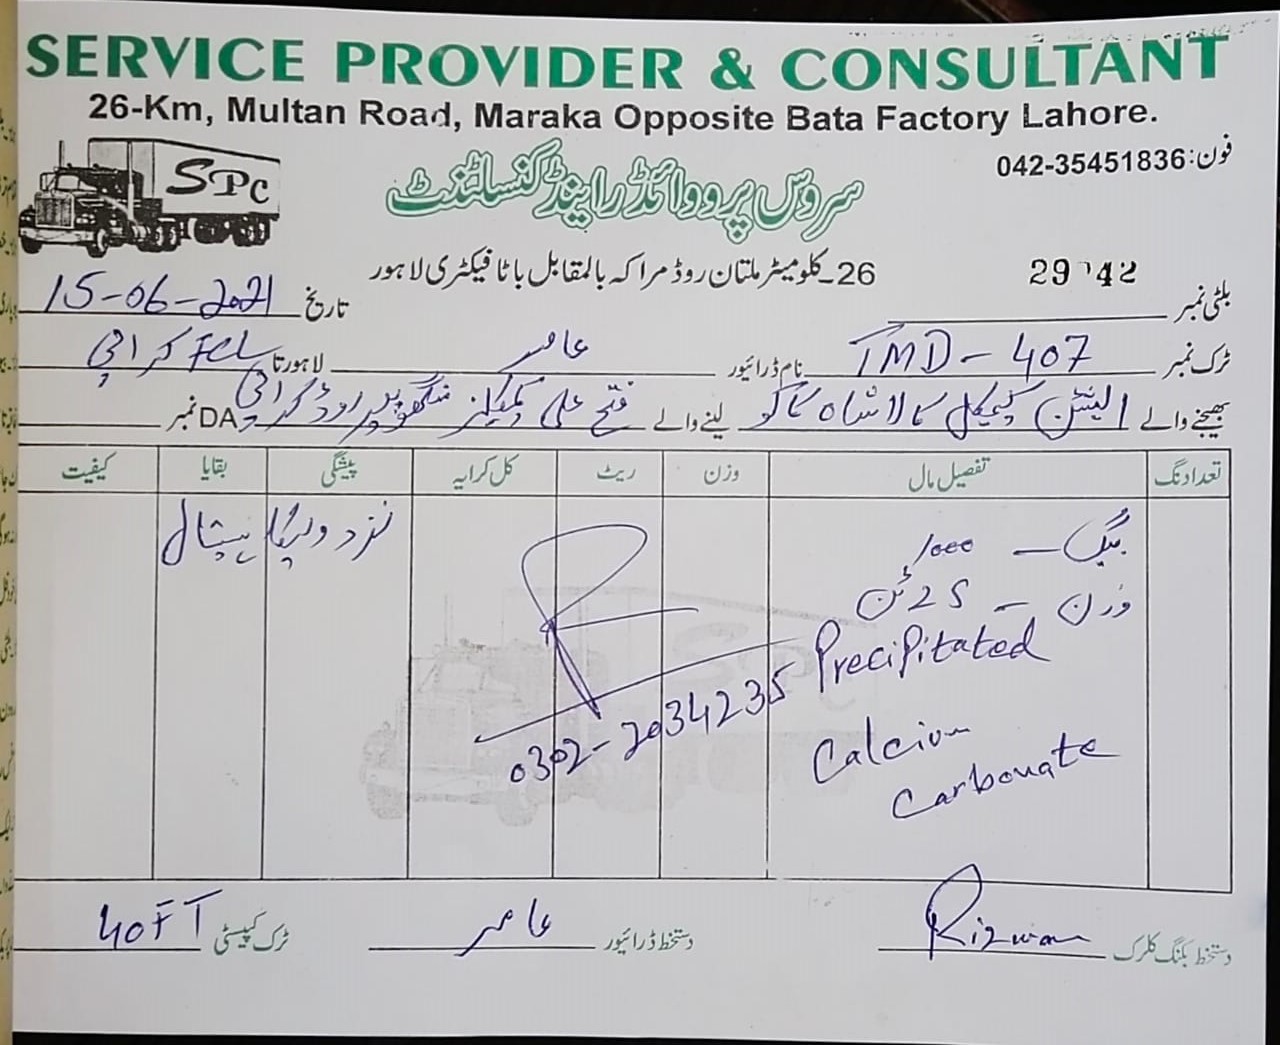 SERVICE PROVIDER & CONSULTANT
26-Km, Multan Road, Maraka Opposite Bata Factory Lahore.
فون: 042-35451836
SPC
سروس پرووائڈر اینڈ کنسلٹنٹ
26۔کلومیٹر ملتان روڈ مراکہ بالمقابل باٹا فیکٹری لاہور
بلٹی نمبر 29 42
تاریخ 15-06-2021
ٹرک نمبر TMD-407 نام ڈرائیور عامر لاہور تا FCL کراچی
بھیجنے والے ایشن کیمیکل کالا شاہ کاکو لینے والے فتح علی کیمیکلز منگھوپیر روڈ کراچی DA نمبر
تعداد نگ تفصیل مال وزن ریٹ کل کرایہ پیشگی بقایا کیفیت
بیگ — 1000
نزد ولیکا ہسپتال
وزن — 25 ٹن
Precipitated
Calcium
Carbonate
0302-2034235
دستخط بکنگ کلرک Rizwan دستخط ڈرائیور عامر ٹرک کپیسٹی 40FT
SPC